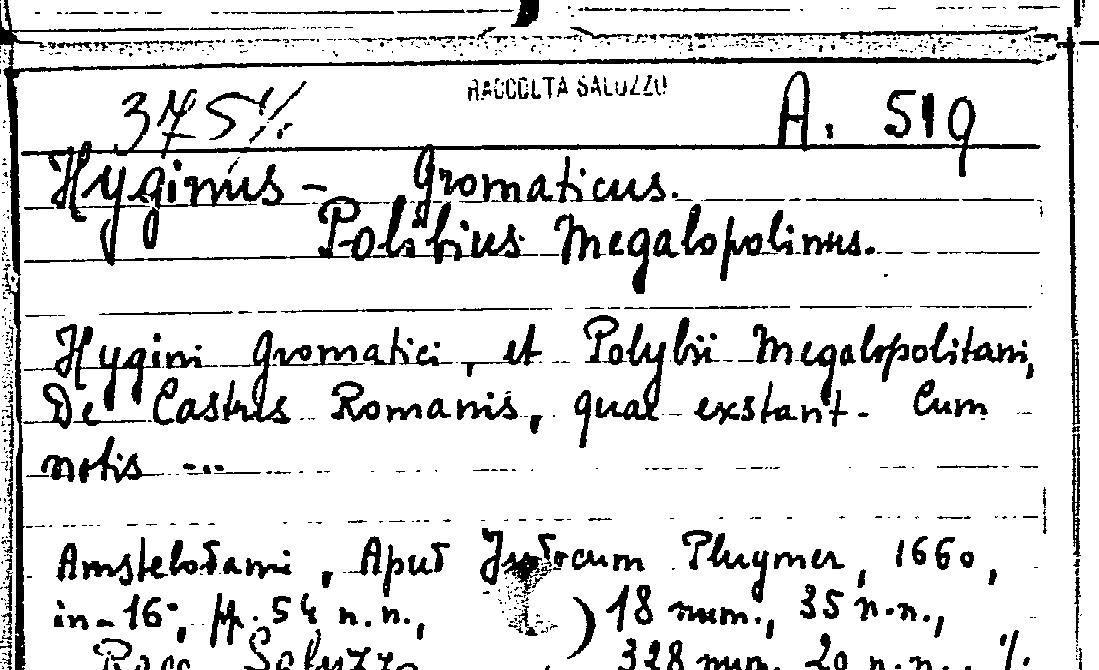 RACCOLTA SALUZZO
375 A. 519
Hyginus - Gromaticus.
Polibius Megalopolinus.
Hygini Gromatici, et Polybii Megalopolitani,
De Castris Romanis, quae exstant. Cum
notis ...
Amstelodami, Apud Plugmer, 1660,
in-16°, pp. 54 n.n., ) 18 num., 35 n.n.,
Racc. Saluzzo 328 num. 20 n.n.. %.